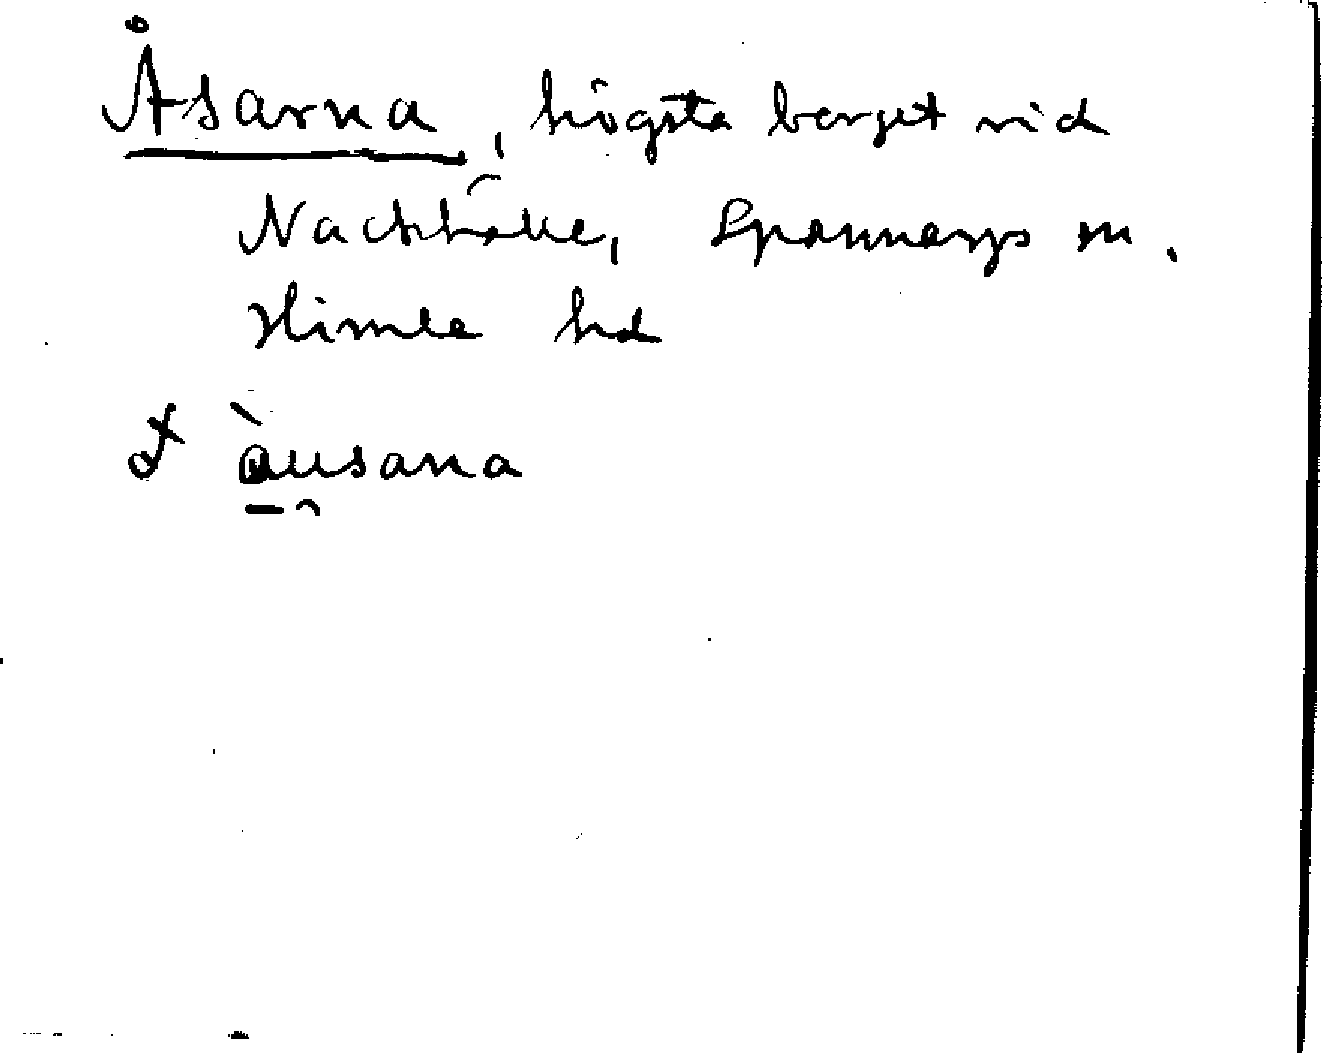 Åsarna, högsta berget vid
Nackhälle, Spannarps sn.
Himle hd
àusana